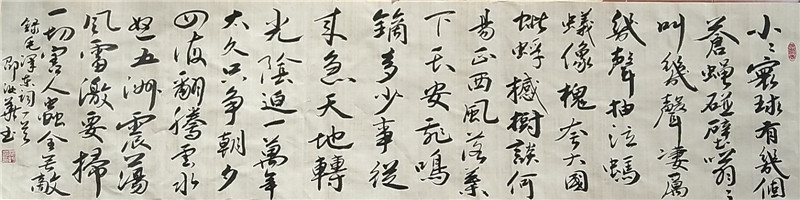 小〻寰球有幾個
蒼蠅碰壁嗡〻
叫幾聲凄厲
幾聲抽泣螞
蟻緣槐夸大國
蚍蜉撼樹談何
易正西風落葉
下長安飛鳴
鏑多少事從
來急天地轉
光陰迫一萬年
太久只爭朝夕
四海翻騰雲水
怒五洲震蕩
風雷激要掃
一切害人蟲全無敵
錄毛澤東詞一首